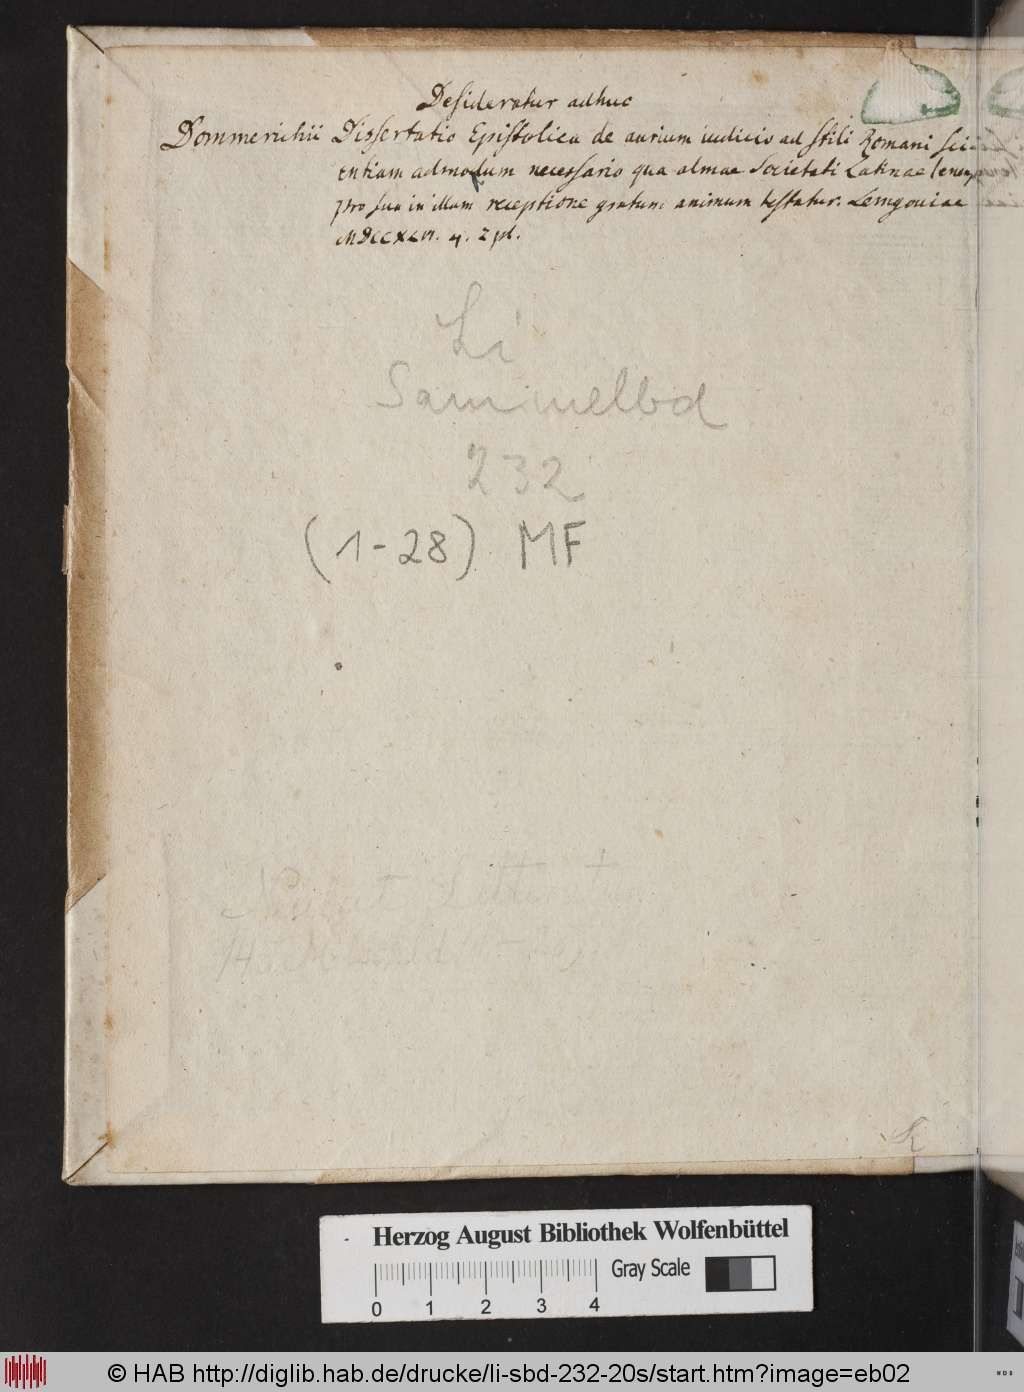 Desideratur adhuc
Dommerichii Dissertatio Epistolica de aurium iudicio ad stili Romani sci-
entiam admodum necessario qua almae Societati Latinae Ienens
pro sua in illam receptione gratum animum testatur. Lemgoviae
MDCCXLVI. 4. 2 pl.
Li
Sammelbd
232
(1-28) MF
Herzog August Bibliothek Wolfenbüttel
Gray Scale
0 1 2 3 4
© HAB http://diglib.hab.de/drucke/li-sbd-232-20s/start.htm?image=eb02